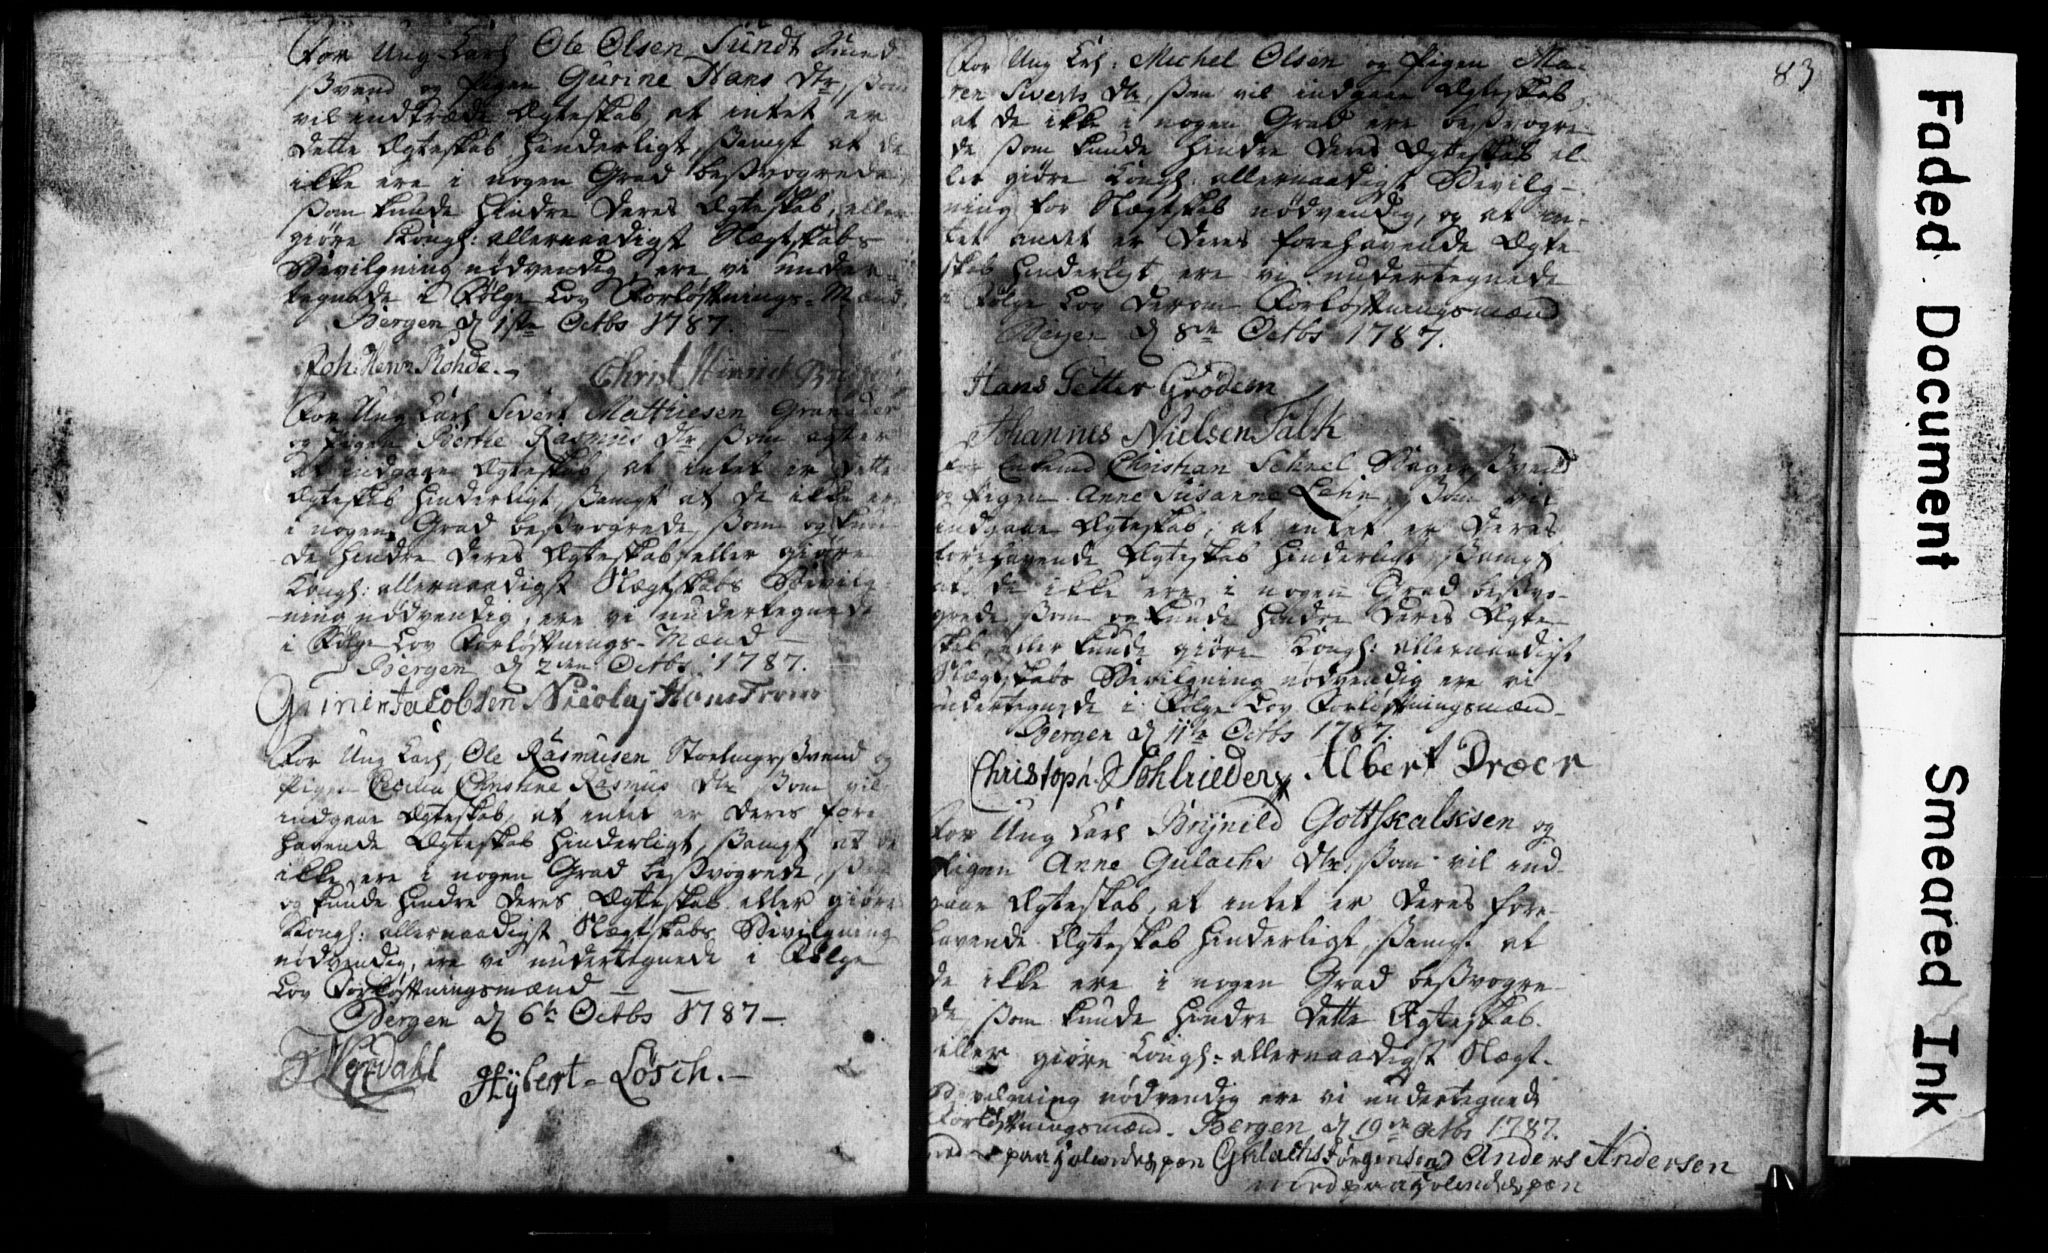 For Ung Karl Ole Olsen Sundt
svend og Pigen Gurine Hans dtr, som
vil indtræde Ægteskab, at intet er
dette Ægteskab hinderligt, samt at de
ikke ere i nogen Grad besvogrede
som kunde hindre deres Ægteskab, eller
giöre Kongl: allernaadigst Slægtskabs
Bevilgning nödvendig, ere vi under-
tegnede i Fölge Lov Forlöftnings-Mænd.
Bergen d 1ste Octbr 1787.
Joh: Henr Rohde.
Christ Hinrich
For Ung Karl Sivert Mathiesen
og Pigen Berthe Rasmus dtr, som agter
at indgaae Ægteskab, at intet er dette
Ægteskab hinderligt, samt at de ikke ere
i nogen Grad besvogrede, som og kun-
de hindre deres Ægteskab, eller giöre
Kongl: allernaadigst Slægtskabs Bevilg-
ning nödvendig, ere vi undertegnede
i Fölge Lov Forlöftnings-Mænd
Bergen d 2den Octbr 1787.
Jacobsen Nicolaj
For Ung Karl, Ole Rasmusen svend og
Pigen Cecilia Christine Rasmus dtr som vil
indgaae Ægteskab, at intet er deres fore-
havende Ægteskab hinderligt, samt at de
ikke ere i nogen Grad besvogrede, som
og kunde hindre deres Ægteskab eller giöre
Kongl: allernaadigst Slægtskabs Bevilgning
nödvendig, ere vi undertegnede i Fölge
Lov Forlöftningsmænd
Bergen d 6te Octbr 1787
Hybert Lösch.
83
For Ung Krl: Michel Olsen og Pigen Ma-
ren Siverts dtr, som vil indgaae Ægteskab,
at de ikke i nogen Grad ere besvogre-
de som kunde hindre deres Ægteskab el-
ler giöre Kongl: allernaadigst Bevilg-
ning for Slægtskab nödvendig, og at in-
tet andet er deres forehavende Ægte-
skab hinderligt, ere vi undertegnede
i Fölge Lov derom Forlöftningsmænd
Bergen d 8de Octbr 1787.
Hans Petter Grödem
Johannes Nielsen Falk
For Enkemd Christian Scheel Bager svend
og Pigen Anne Susanne Lehn, som vil
indgaae Ægteskab, at intet er deres
forehavende Ægteskab hinderligt, samt
at de ikke ere i nogen Grad besvo-
grede som og kunde hindre deres Ægte-
skab, eller kunde giöre Kongl: allernaadigst
Slægtskabs Bevilgning nödvendig ere vi
undertegnede i Fölge Lov Forlöftningsmænd
Bergen d 11te Octbr 1787.
Christoph Schlrieder Albert Dræer
For Ung Karl Brijnild Gottskalksen og
Pigen Anne Gulachs dtr, som vil ind-
gaae Ægteskab, at intet er deres fore-
havende Ægteskab hinderligt, samt at
de ikke ere i nogen Grad besvogre-
de, som kunde hindre dette Ægteskab.
eller giöre Kongl: allernaadigst Slægt-
Bevilgning nödvendig ere vi undertegnede
Forlöftningsmænd. Bergen d 19de Octbr 1787.
med paa holden pen Gulachs Jörgensen Anders Andersen
med paa holden pen
Faded Document
Smeared Ink